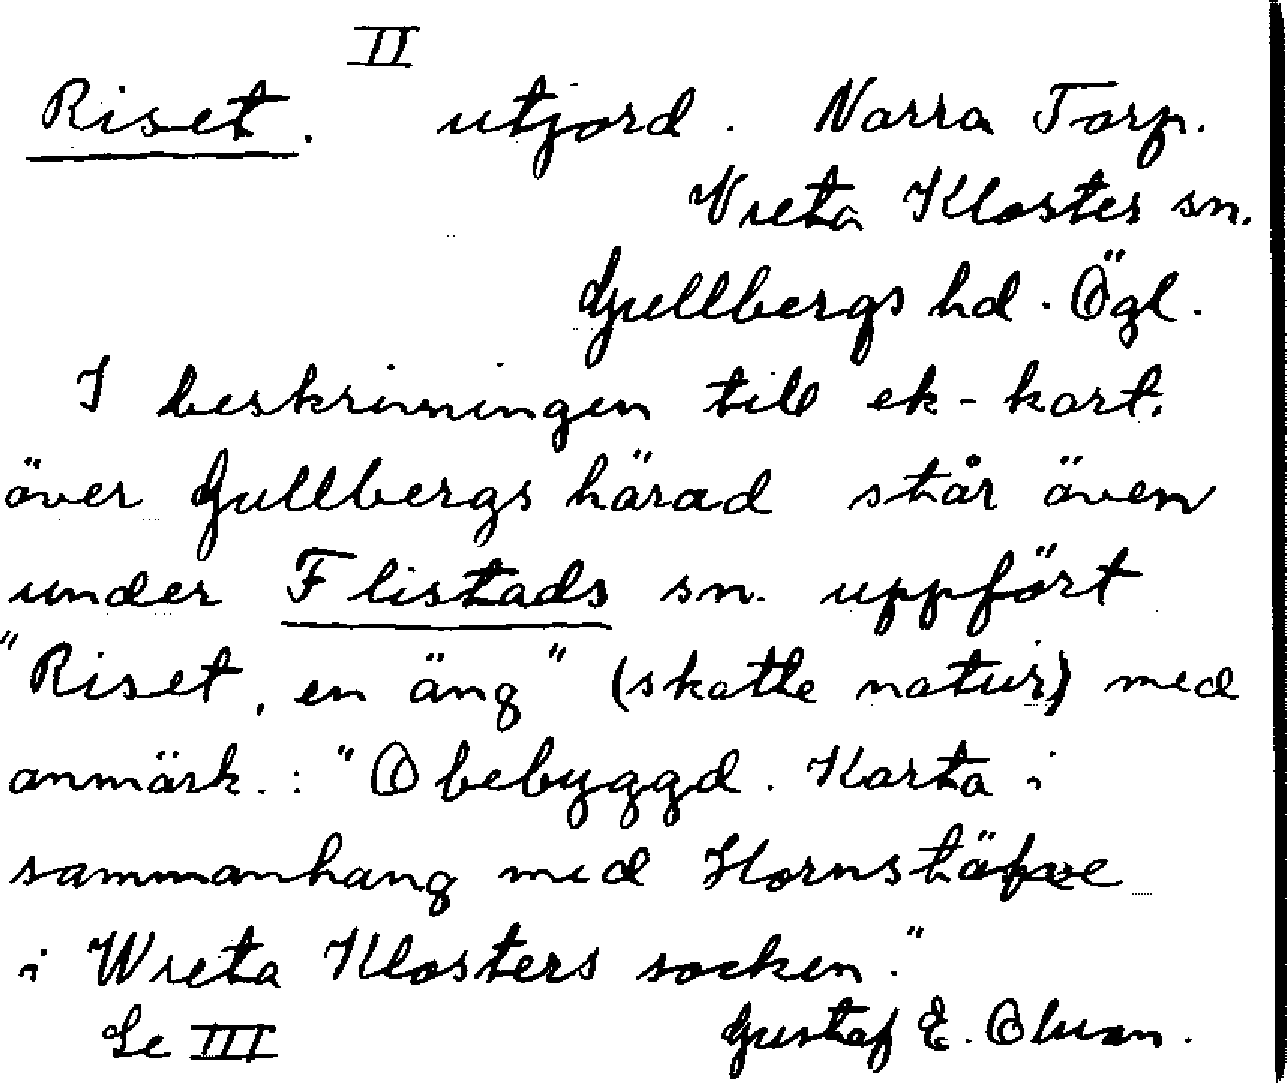 II
Riset. utjord. Norra Torp.
Vreta Kloster sn.
Gullbergs hd. Ögl.
I beskrivningen till ek-kart.
över Gullbergs härad står även
under Flistads sn. uppfört
"Riset, en äng" (skatte natur) med
anmärk.: "Obebyggd. Karta i
sammanhang med Hornstäfve
i Wreta Klosters socken."
Se III Gustaf E. Olsson.